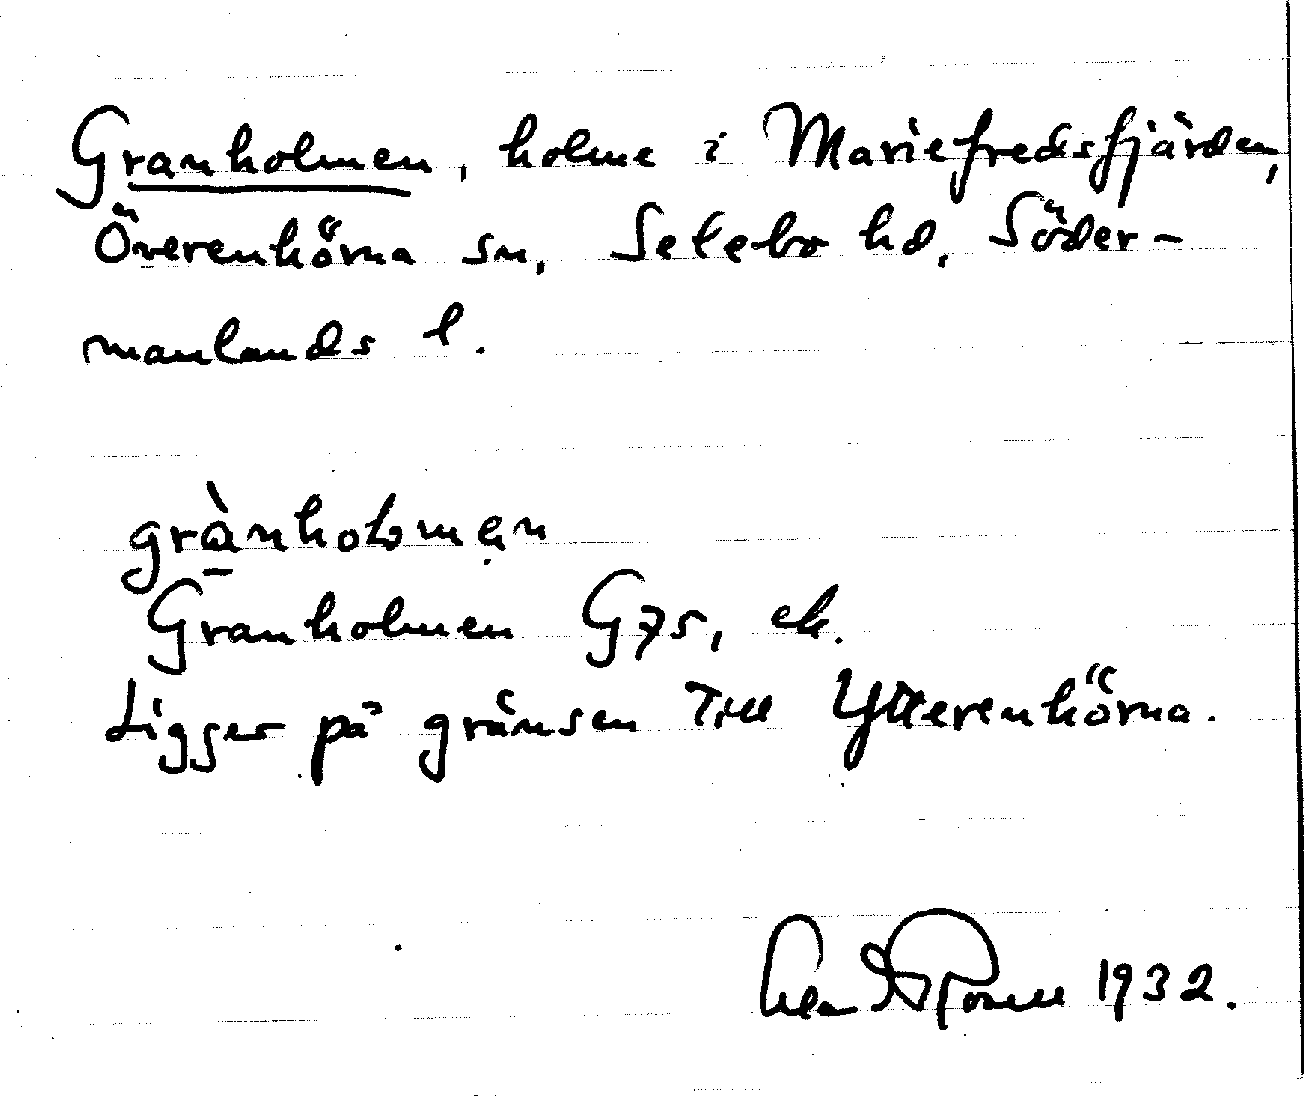 Granholmen, holme i Mariefredsfjärden,
Överenhörna sn, Selebo hd, Söder-
manlands l.
grànholmen
Granholmen G75, ek.
Ligger på gränsen till Ytterenhörna.
1932.